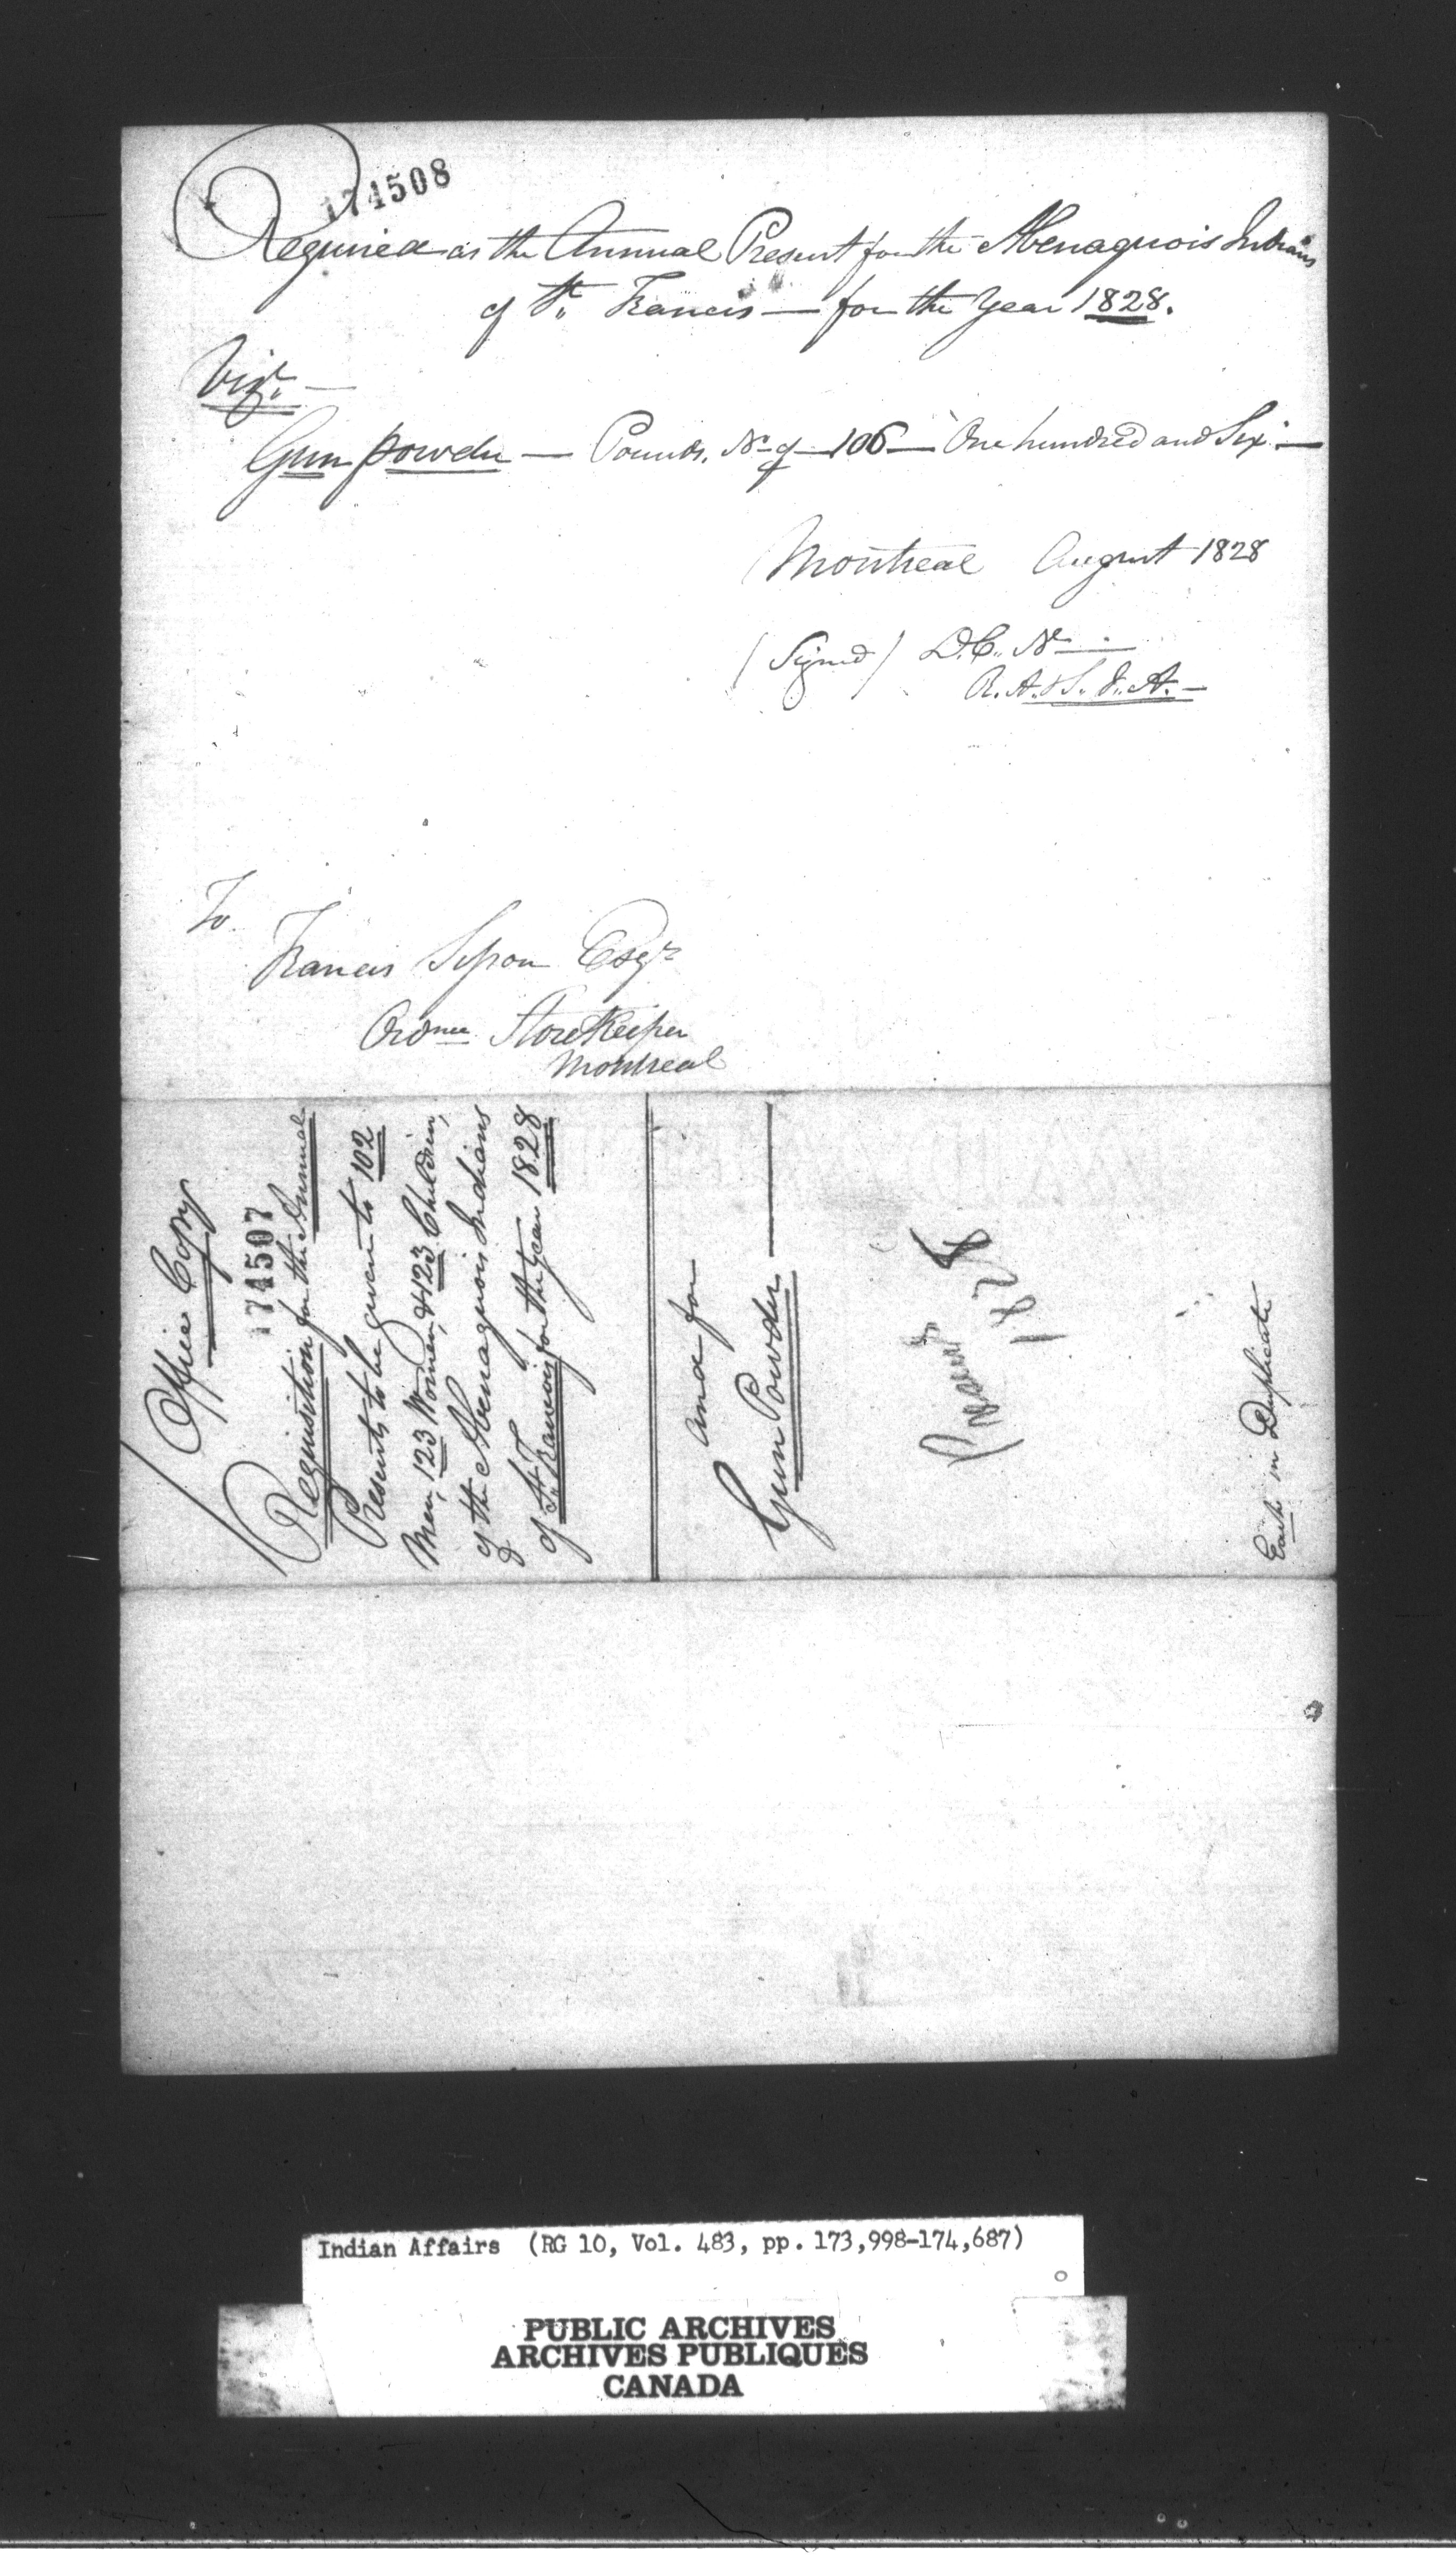 174508
Required as the Annual Present for the Abenaquois Indians
of St. Francis — for the Year 1828.
Vizt. —
Gun powder — Pounds. No. of — 106 — One hundred and Six. —
Montreal August 1828
(Signed) D. C. N —
R. A. & S. I. A. —
To
Francis Esqr
Ordnce Storekeeper
Montreal
Office Copy
174507
Requisition for the Annual
Presents to be given to 102
Men, 123 Women, & 123 Children,
of the Abenaquois Indians
of St. Francois for the year 1828
and for
Gun Powder —
1828
Each in Duplicate
Indian Affairs (RG 10, Vol. 483, pp. 173,998-174,687)
PUBLIC ARCHIVES
ARCHIVES PUBLIQUES
CANADA